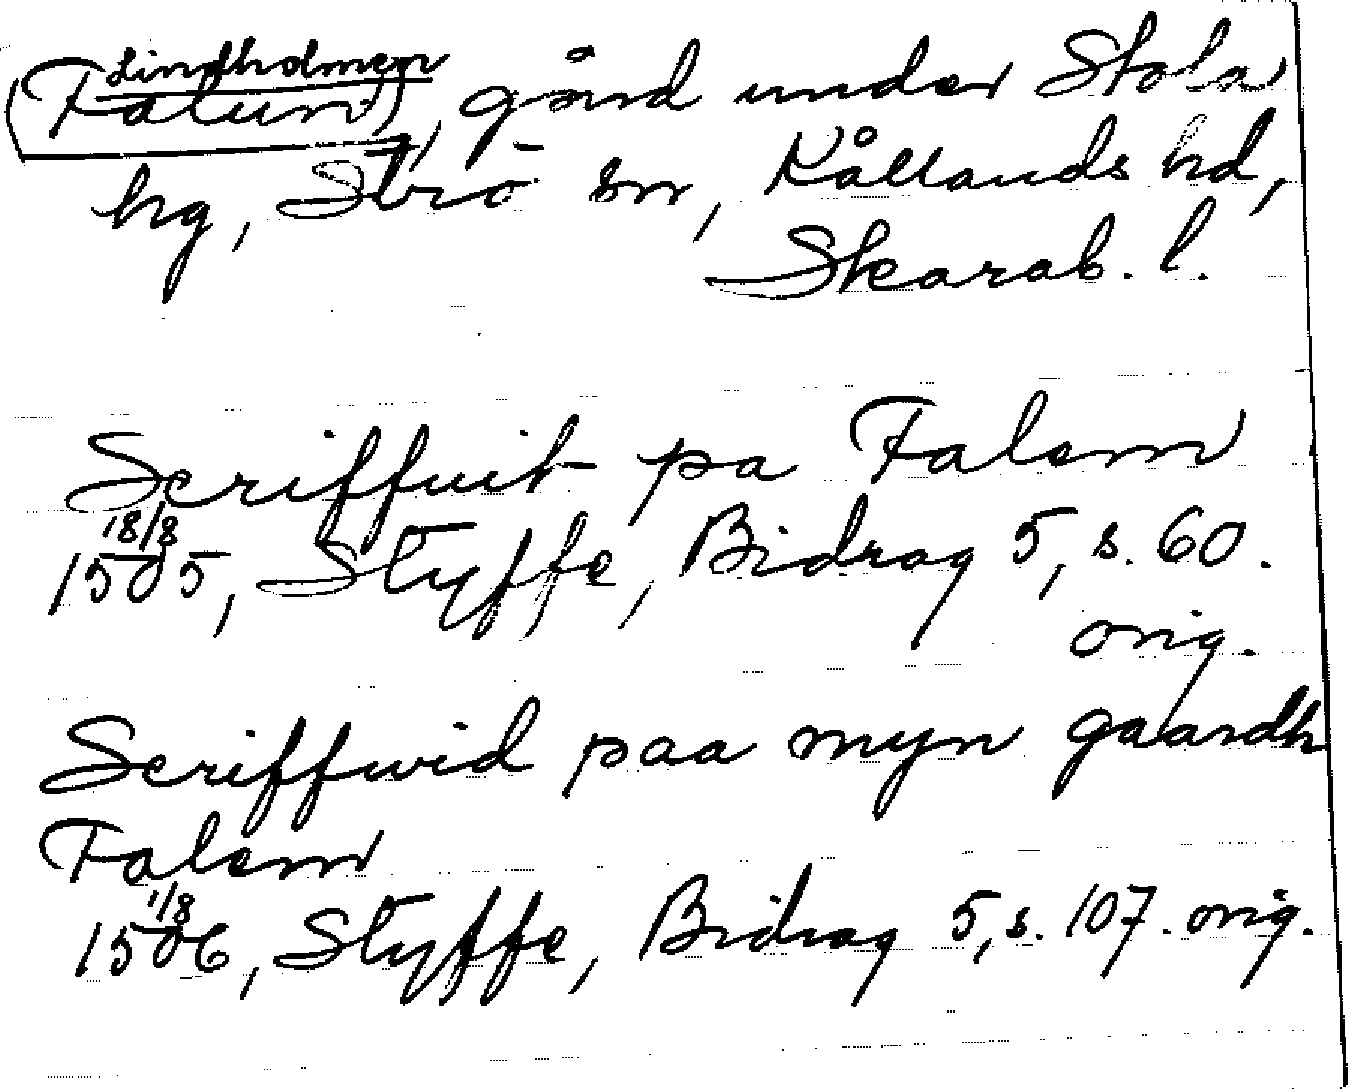 Lindholmen
(Falun), gård under Stola
hg, Strö sn, Kållands hd,
Skarab. l.
Scriffuit pa Falem
18/8
1505, Styffe, Bidrag 5, s. 60.
orig.
Scriffwid paa myn gaardh
Falem
1/8
1506, Styffe, Bidrag 5, s. 107. orig.